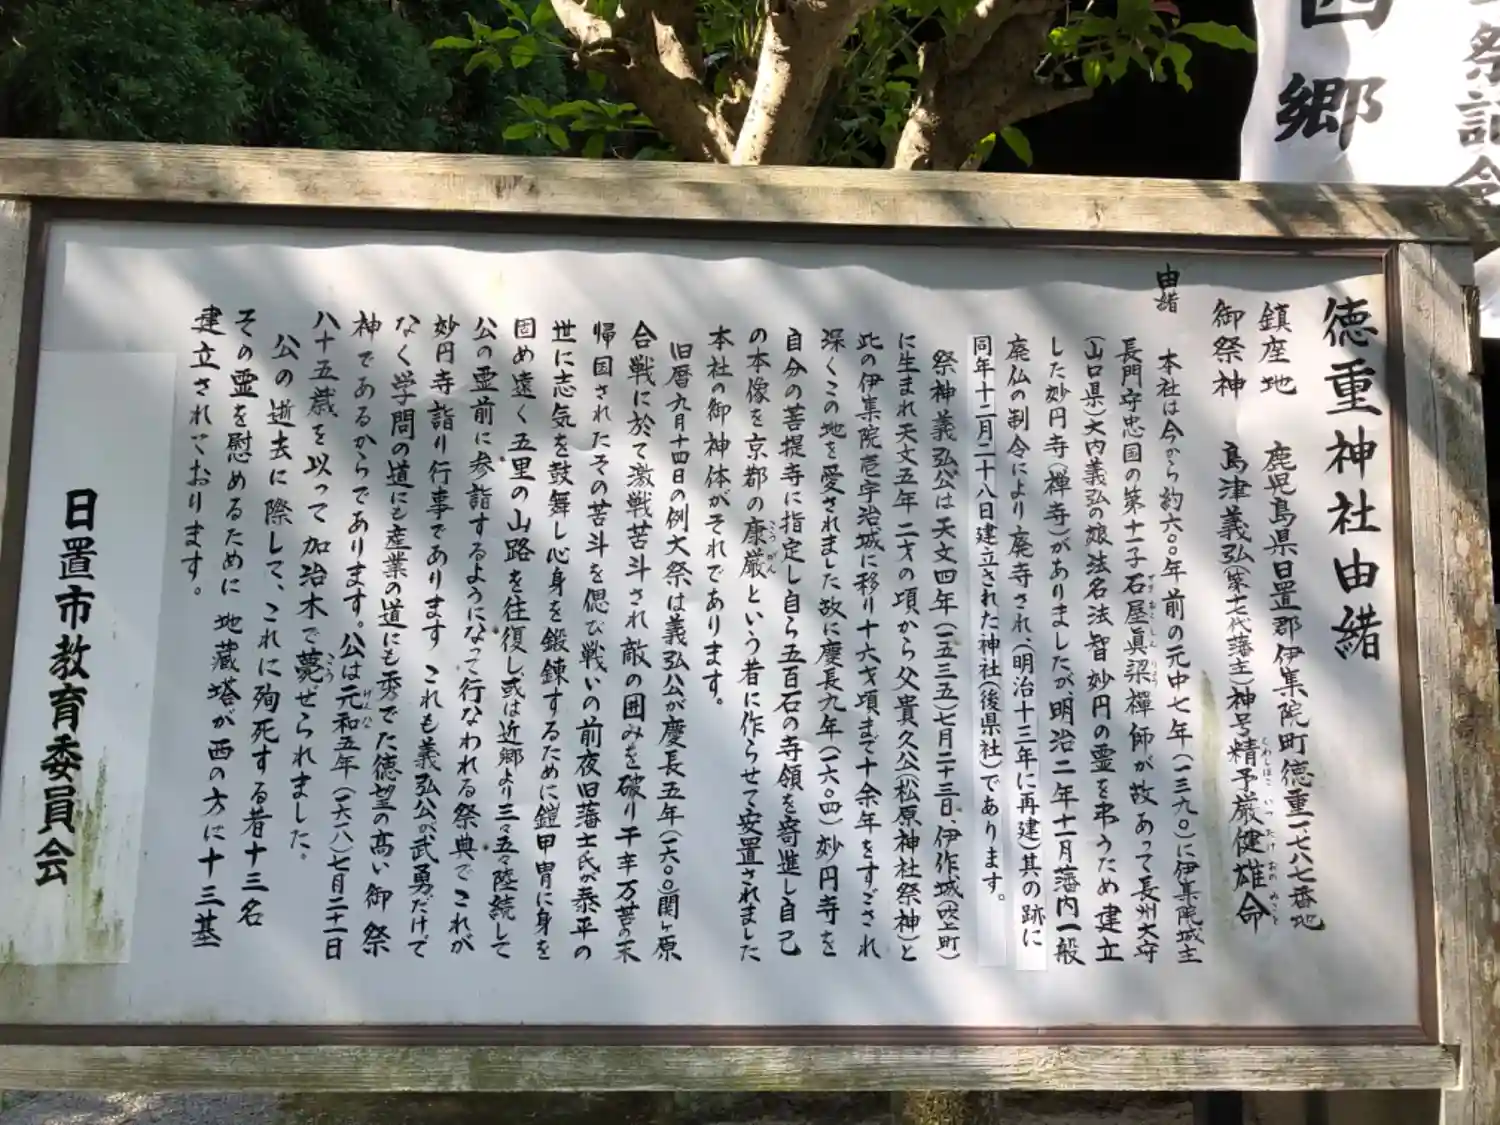 徳重神社由緒
鎮座地　鹿児島県日置郡伊集院町徳重一七八七番地
御祭神　島津義弘(第十七代藩主)神号精矛厳健雄命
くわしほこいつたけおのみこと
由緒
本社は今から約六〇〇年前の元中七年(一三九〇)に伊集院城主
長門守忠国の第十一子石屋眞梁禪師が故あって長州大守
(山口県)大内義弘の娘法名法智妙円の霊を弔うため建立
した妙円寺(禅寺)がありましたが、明治二年十一月藩内一般
廃仏の制令により廃寺され、(明治十三年に再建)其の跡に
同年十二月二十八日建立された神社(後県社)であります。
祭神義弘公は天文四年(一五三五)七月二十三日、伊作城(吹上町)
に生まれ天文五年二才の頃から父貴久公(松原神社祭神)と
此の伊集院壱宇治城に移り十六才頃まで十余年をすごされ
深くこの地を愛されました故に慶長九年(一六〇四)妙円寺を
自分の菩提寺に指定し自ら五百石の寺領を寄進し自己
の本像を京都の康厳という者に作らせて安置されました
こうげん
本社の御神体がそれであります。
旧暦九月十四日の例大祭は義弘公が慶長五年(一六〇〇)関ヶ原
合戦に於て激戦苦斗され敵の囲みを破り千辛万苦の末
帰国されたその苦斗を偲び戦いの前夜旧藩士氏が泰平の
世に志気を鼓舞し心身を鍛錬するために鎧甲冑に身を
固め遠く五里の山路を往復し或は近郷より三々五々陸続して
公の霊前に参詣するようになって行なわれる祭典でこれが
妙円寺詣り行事であります これも義弘公が武勇だけで
なく学問の道にも産業の道にも秀でた徳望の高い御祭
神であるからであります。公は元和五年(一六一八)七月二十一日
げんな
八十五歳を以って加治木で薨ぜられました。
こう
公の逝去に際して、これに殉死する者十三名
その霊を慰めるために 地蔵塔が西の方に十三基
建立されております。
日置市教育委員会
郷
祭記念